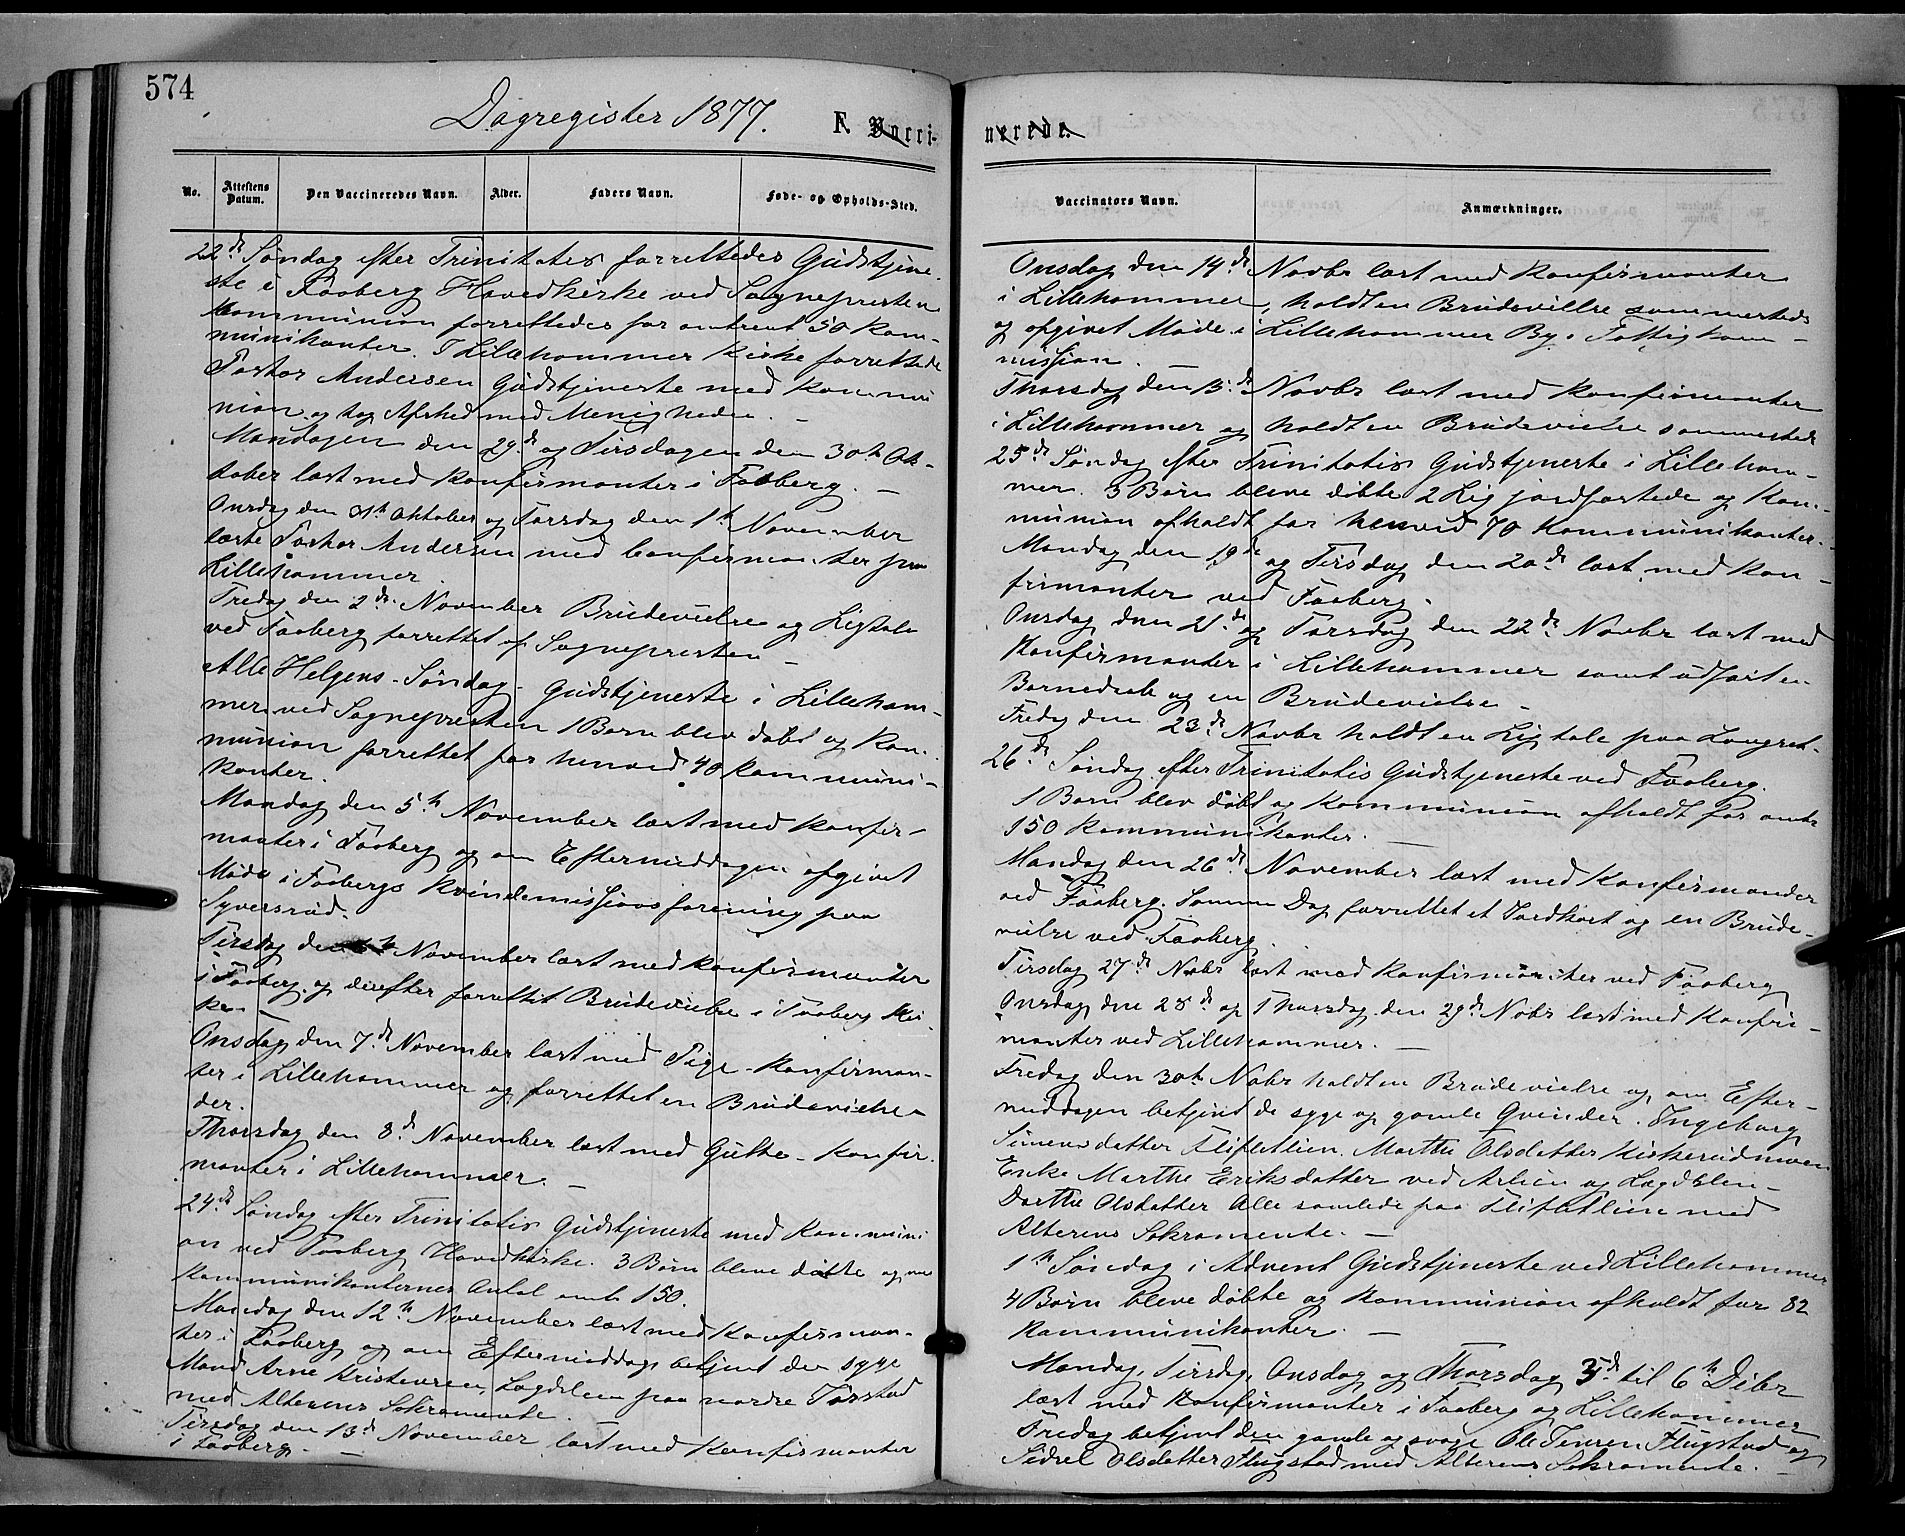 574
Dagregister 1877.
F. Vacci-
nerede.
No.
Attestens Datum.
Den Vaccineredes Navn.
Alder.
Faders Navn.
Føde- og Opholds-Sted.
Vaccinators Navn.
Anmærkninger.
22de Søndag efter Trinitatis forrettedes Gudstjene-
ste i Faaberg Hovedkirke ved Sognepresten
Kommunion forrettedes for omtrent 50 Kom-
munikanter. I Lillehammer Kirke forrettede
Pastor Andersen Gudstjeneste med Kommu
nion og tog Afsked med Menigheden. –
Mandagen den 29de og Tirsdagen den 30te Ok-
tober læst med Konfirmanter i Faaberg. –
Onsdag den 31te Oktober og Torsdag den 1te November
læste Pastor Andersen med Confirmanter paa
Lillehammer
Fredag den 2de November Brudevielse og Ligtale
ved Faaberg forrettet af Sognepresten –
Alle Helgens-Søndag. Gudstjeneste i Lilleham-
mer ved Sognepresten 1 Barn blev døbt og Kom-
munion forrettet for henved 40 Kommuni-
kanter.
Mandag den 5te November læst med Konfir-
manter i Faaberg og om Eftermiddagen afgivet
Møde i Faabergs Kvindemissionsforening paa
Syversrud.
Tirsdag den 6te November læst med Konfirmanter
i Faaberg og derefter forrettet Brudevielse i Faaberg Kir-
ke. –
Onsdag den 7de November læst med Pige-Konfirman-
ter i Lillehammer og forrettet en Brudevielse
der.
Thorsdag den 8de November læst med Gutte-Konfir-
manter i Lillehammer. –
24de Søndag efter Trinitatis Gudstjeneste med Kommuni
on ved Faaberg Hovedkirke. 3 Børn bleve døbte og var
Kommunikanternes Antal omtr 150.
Mandag den 12te November læst med Konfirman-
ter i Faaberg og om Eftermiddag betjent den syge
Mand Arne Kristensen, Lægdslem paa nordre Jørstad
med Alterens Sakramente.
Tirsdag den 13de November læst med Konfirmanter
i Faaberg. –
Onsdag den 14de Novbr læst med Konfirmanter
i Lillehammer, holdt en Brudevielse sammesteds
og afgivet Møde i Lillehammer By's Fattigkom-
mission. –
Thorsdag den 15de Novbr læst med Konfirmanter
i Lillehammer og holdt en Brudevielse sammesteds
25de Søndag efter Trinitatis Gudstjeneste i Lilleham-
mer. 3 Børn bleve døbte 2 Lig jordfæstede og Kom-
munion afholdt for henved 70 Kommunikanter. –
Mandag den 19de og Tirsdag den 20de læst med Kon-
firmanter ved Faaberg.
Onsdag den 21de og Torsdag den 22de Novbr læst med
Konfirmanter i Lillehammer samt udført en
Barnedaab og en Brudevielse –
Fredag den 23de Novbr holdt en Ligtale paa
26de Søndag efter Trinitatis Gudstjeneste ved Faaberg.
1 Barn blev døbt og Kommunion afholdt for omtr
150 Kommunikanter. –
Mandag den 26de November læst med Konfirmander
ved Faaberg. Samme Dag forrettet et Jordkast og en Brude-
vielse ved Faaberg.
Tirsdag 27de Nvbr læst med Konfirmanter ved Faaberg
Onsdag den 28de og Thorsdag den 29de Nvbr læst med Konfir-
manter ved Lillehammer. –
Fredag den 30te Nvbr holdt en Brudevielse og om Efter-
middagen betjent de syge og gamle Qvinder. Ingeborg
Simensdatter Marthe Olsdatter Kirkerudmoen
Enke Marthe Eriksdatter ved Aslien og Lægdslem
Dorthe Olsdatter Alle samlede paa med
Alterens Sakramente. –
1te Søndag i Advent Gudstjeneste ved Lillehammer
4 Børn bleve døbte og Kommunion afholdt for 82
Kommunikanter. –
Mandag, Tirsdag, Onsdag og Thorsdag 3de til 6te Debr
læst med Konfirmanter i Faaberg og Lillehammer
Fredag betjent den gamle og svage Ole Jensen Flugstad og
Sidsel Olsdatter Flugstad med Alterens Sakramente. –